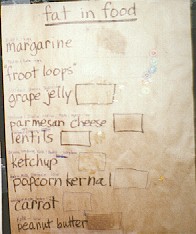 fat in food
margarine
"froot loops"
grape jelly
parmesan cheese
lentils
ketchup
popcorn kernal
carrot
peanut butter